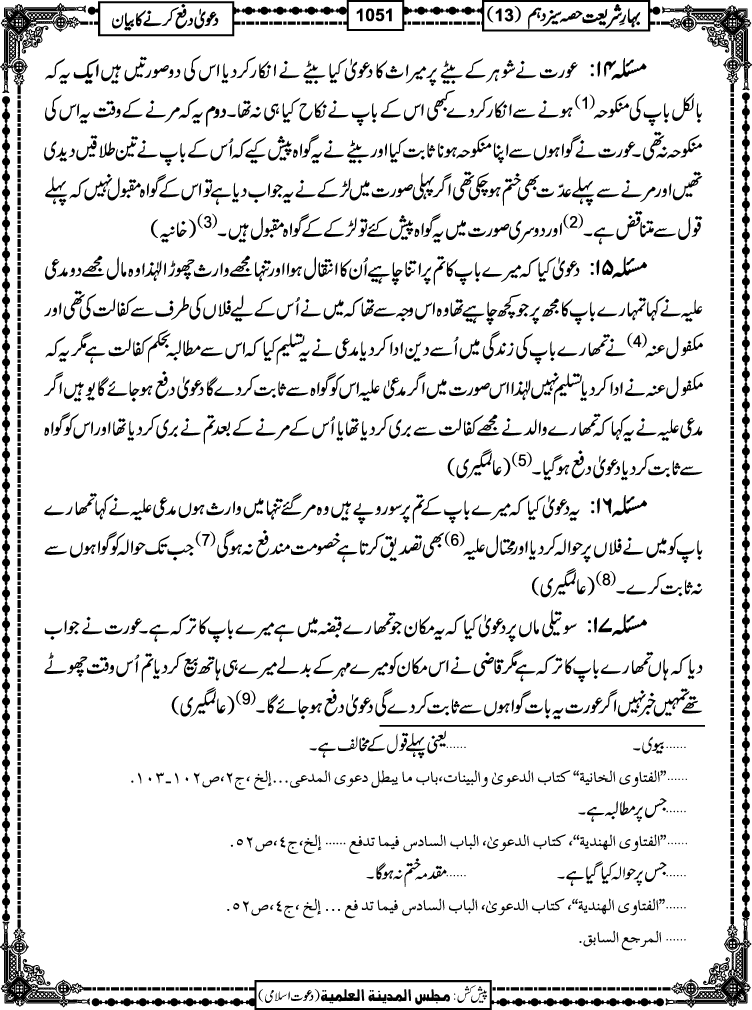 بہارِ شریعت حصہ سیزدہم (13)
1051
دعویٰ دفع کرنے کا بیان
مسئلہ ۱۴: عورت نے شوہر کے بیٹے پر میراث کا دعویٰ کیا بیٹے نے انکار کر دیا اس کی دو صورتیں ہیں ایک یہ کہ
بالکل باپ کی منکوحہ (1) ہونے سے انکار کر دے کبھی اس کے باپ نے نکاح کیا ہی نہ تھا۔ دوم یہ کہ مرنے کے وقت یہ اس کی
منکوحہ نہ تھی۔ عورت نے گواہوں سے اپنا منکوحہ ہونا ثابت کیا اور بیٹے نے یہ گواہ پیش کیے کہ اُس کے باپ نے تین طلاقیں دیدی
تھیں اور مرنے سے پہلے عدّت بھی ختم ہو چکی تھی اگر پہلی صورت میں لڑکے نے یہ جواب دیا ہے تو اس کے گواہ مقبول نہیں کہ پہلے
قول سے متناقض ہے۔ (2) اور دوسری صورت میں یہ گواہ پیش کئے تو لڑکے کے گواہ مقبول ہیں۔ (3) (خانیہ)
مسئلہ ۱۵: دعویٰ کیا کہ میرے باپ کا تم پر اتنا چاہیے اُن کا انتقال ہوا اور تنہا مجھے وارث چھوڑا لہٰذا وہ مال مجھے دو مدعی
علیہ نے کہا تمہارے باپ کا مجھ پر جو کچھ چاہیے تھا وہ اس وجہ سے تھا کہ میں نے اُس کے لیے فلاں کی طرف سے کفالت کی تھی اور
مکفول عنہ (4) نے تمھارے باپ کی زندگی میں اُسے دین ادا کر دیا مدعی نے یہ تسلیم کیا کہ اس سے مطالبہ بحکم کفالت ہے مگر یہ کہ
مکفول عنہ نے ادا کر دیا تسلیم نہیں لہٰذا اس صورت میں اگر مدعیٰ علیہ اس کو گواہ سے ثابت کر دے گا دعویٰ دفع ہو جائے گا یوہیں اگر
مدعی علیہ نے یہ کہا کہ تمھارے والد نے مجھے کفالت سے بری کر دیا تھا یا اُس کے مرنے کے بعد تم نے بری کر دیا تھا اور اس کو گواہ
سے ثابت کر دیا دعویٰ دفع ہو گیا۔ (5) (عالمگیری)
مسئلہ ۱۶: یہ دعویٰ کیا کہ میرے باپ کے تم پر سو روپے ہیں وہ مر گئے تنہا میں وارث ہوں مدعی علیہ نے کہا تمھارے
باپ کو میں نے فلاں پر حوالہ کر دیا اور محتال علیہ (6) بھی تصدیق کرتا ہے خصومت مندفع نہ ہوگی (7) جب تک حوالہ کو گواہوں سے
نہ ثابت کرے۔ (8) (عالمگیری)
مسئلہ ۱۷: سوتیلی ماں پر دعویٰ کیا کہ یہ مکان جو تمھارے قبضہ میں ہے میرے باپ کا ترکہ ہے۔ عورت نے جواب
دیا کہ ہاں تمھارے باپ کا ترکہ ہے مگر قاضی نے اس مکان کو میرے مہر کے بدلے میرے ہی ہاتھ بیع کر دیا تم اُس وقت چھوٹے
تھے تمہیں خبر نہیں اگر عورت یہ بات گواہوں سے ثابت کر دے گی دعویٰ دفع ہو جائے گا۔ (9) (عالمگیری)
......بیوی۔ ......یعنی پہلے قول کے مخالف ہے۔
......”الفتاوی الخانیة“ کتاب الدعویٰ والبینات، باب ما یبطل دعوی المدعی...إلخ، ج۲، ص۱۰۲-۱۰۳.
......جس پر مطالبہ ہے۔
......”الفتاوی الهندیة“، کتاب الدعویٰ، الباب السادس فیما تدفع ...... إلخ، ج٤، ص٥٢.
......جس پر حوالہ کیا گیا ہے۔ ......مقدمہ ختم نہ ہوگا۔
......”الفتاوی الهندیة“، کتاب الدعویٰ، الباب السادس فیما تدفع ... إلخ، ج٤، ص٥٢.
...... المرجع السابق.
پیش کش: مجلس المدینة العلمیة (دعوت اسلامی)